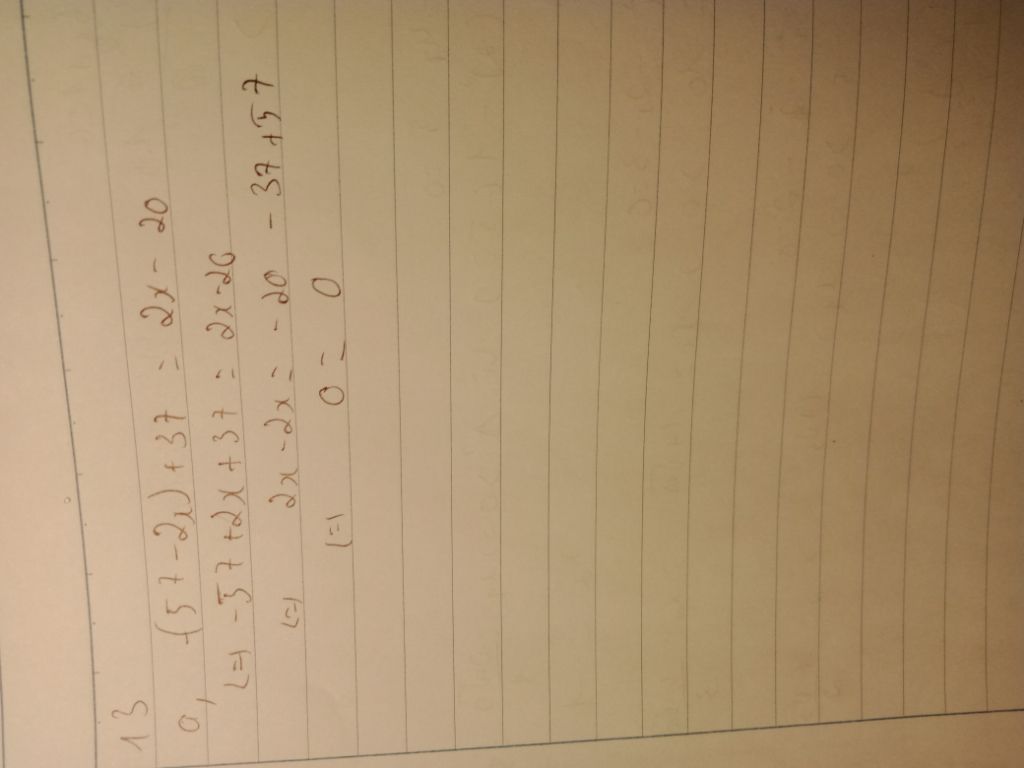 13
a, -(57 - 2x) + 37 = 2x - 20
<=> -57 + 2x + 37 = 2x - 20
<=> 2x - 2x = -20 - 37 + 57
<=> 0 = 0